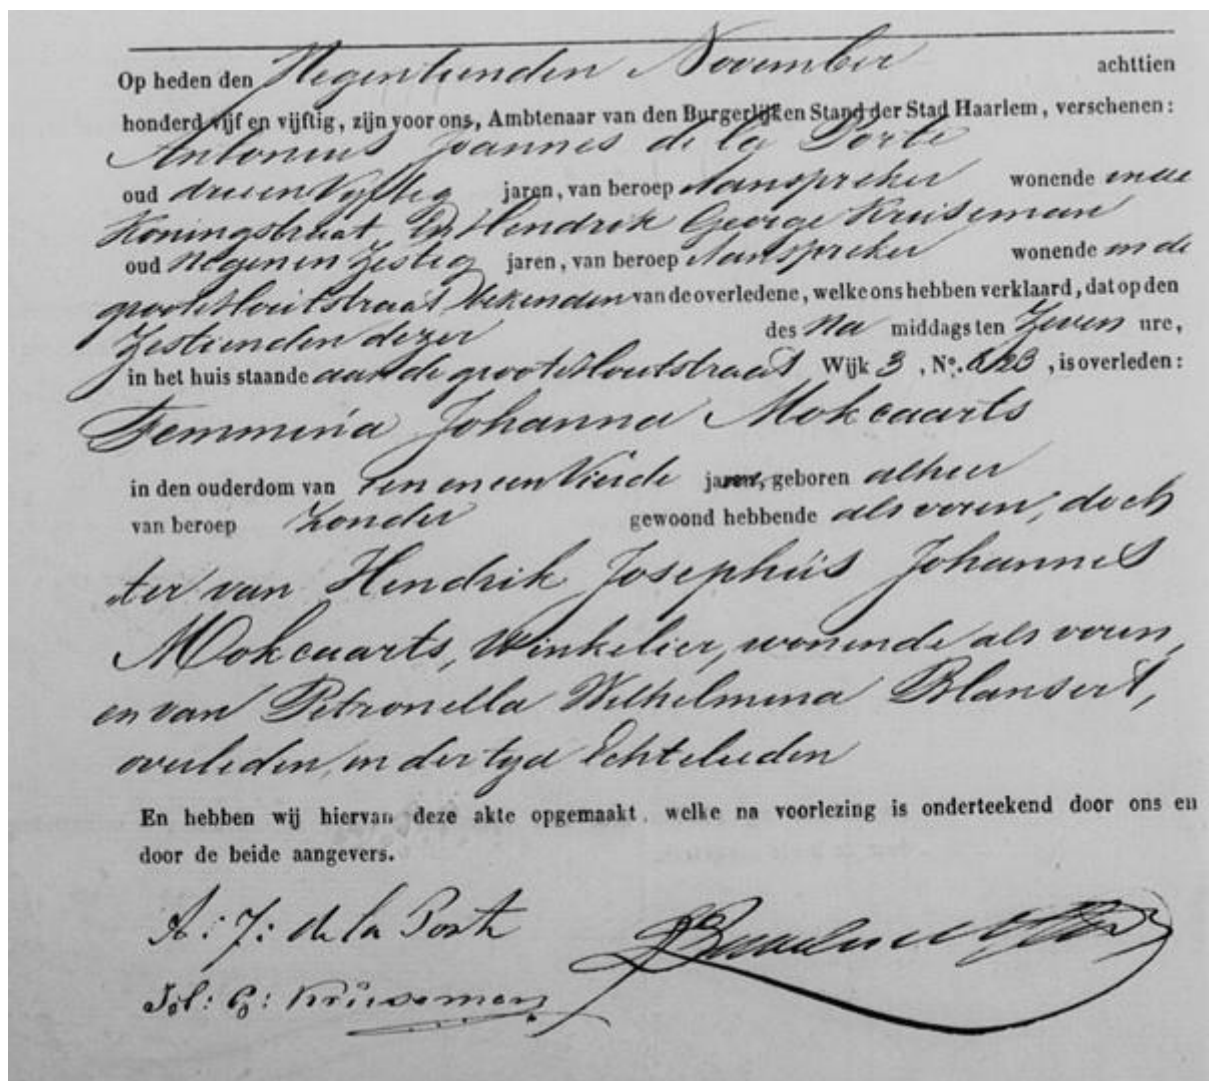 Op heden den Negentienden November achttien
honderd vijf en vijftig, zijn voor ons, Ambtenaar van den Burgerlijken Stand der Stad Haarlem, verschenen:
Antonius Joannes de la Porte
oud drieenvyftig jaren, van beroep Aanspreker wonende in de
Koningstraat En Hendrik George Kruiseman
oud Negen en Zestig jaren, van beroep Aanspreker wonende in de
groote Houtstraat, bekenden van de overledene, welke ons hebben verklaard, dat op den
Zestienden dezer des Na middags ten Zeven ure,
in het huis staande aan de groote Houtstraat Wijk 3, No. , is overleden:
Femmina Johanna Mokcaarts
in den ouderdom van Een en een Vierde jaren, geboren alhier
van beroep Zonder gewoond hebbende als voren, doch
ter van Hendrik Josephus Johannes
Mokcaarts, Winkelier, wonende als voren,
en van Petronella Wilhelmina Blansert,
overleden, in der tyd Echtelieden
En hebben wij hiervan deze akte opgemaakt, welke na voorlezing is onderteekend door ons en
door de beide aangevers.
A: J: de la Porte
G: Kruseman